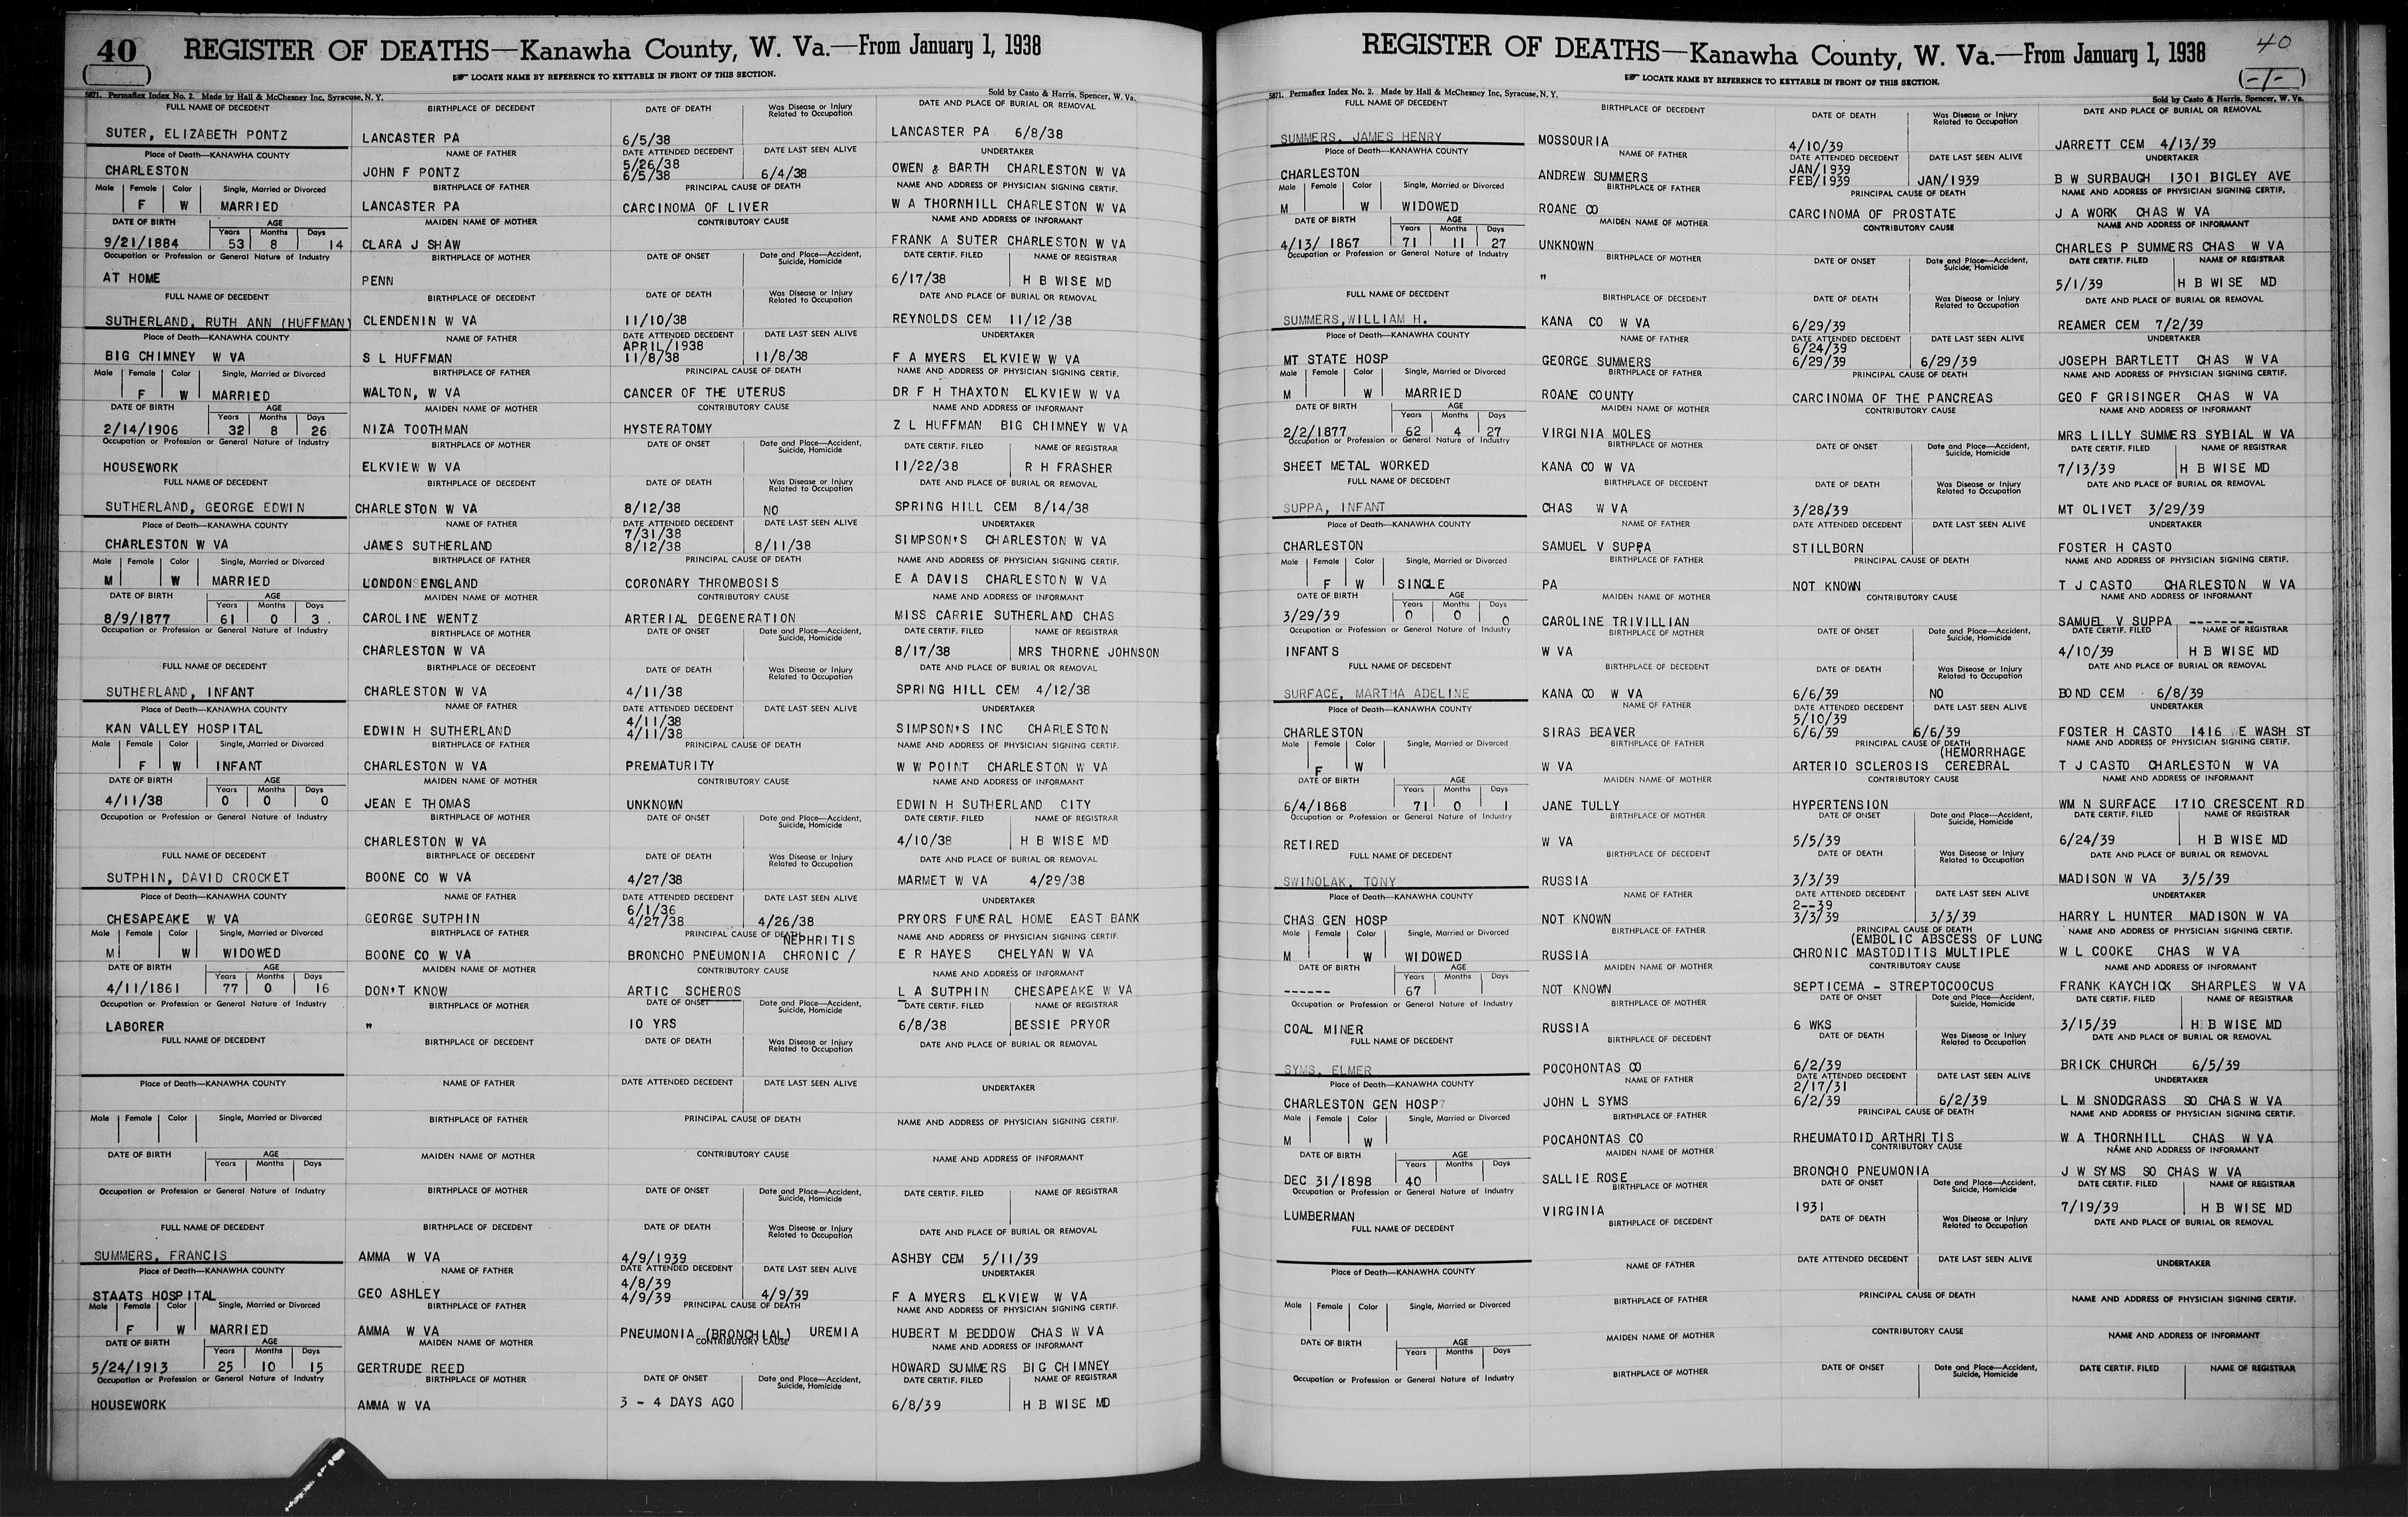 40 REGISTER OF DEATHS—Kanawha County, W. Va.—From January 1, 1938
( ) ☞ LOCATE NAME BY REFERENCE TO KEYTABLE IN FRONT OF THIS SECTION.
5871. Permaflex Index No. 2. Made by Hall & McChesney Inc, Syracuse, N. Y. Sold by Casto & Harris, Spencer, W. Va.
FULL NAME OF DECEDENT BIRTHPLACE OF DECEDENT DATE OF DEATH Was Disease or Injury Related to Occupation DATE AND PLACE OF BURIAL OR REMOVAL
SUTER, ELIZABETH PONTZ LANCASTER PA 6/5/38 LANCASTER PA 6/8/38
Place of Death—KANAWHA COUNTY NAME OF FATHER DATE ATTENDED DECEDENT DATE LAST SEEN ALIVE UNDERTAKER
CHARLESTON JOHN F PONTZ 5/26/38 6/5/38 6/4/38 OWEN & BARTH CHARLESTON W VA
Male Female Color Single, Married or Divorced BIRTHPLACE OF FATHER PRINCIPAL CAUSE OF DEATH NAME AND ADDRESS OF PHYSICIAN SIGNING CERTIF.
F W MARRIED LANCASTER PA CARCINOMA OF LIVER W A THORNHILL CHARLESTON W VA
DATE OF BIRTH AGE Years Months Days MAIDEN NAME OF MOTHER CONTRIBUTORY CAUSE NAME AND ADDRESS OF INFORMANT
9/21/1884 53 8 14 CLARA J SHAW FRANK A SUTER CHARLESTON W VA
Occupation or Profession or General Nature of Industry BIRTHPLACE OF MOTHER DATE OF ONSET Date and Place—Accident, Suicide, Homicide DATE CERTIF. FILED NAME OF REGISTRAR
AT HOME PENN 6/17/38 H B WISE MD
FULL NAME OF DECEDENT BIRTHPLACE OF DECEDENT DATE OF DEATH Was Disease or Injury Related to Occupation DATE AND PLACE OF BURIAL OR REMOVAL
SUTHERLAND, RUTH ANN (HUFFMAN) CLENDENIN W VA 11/10/38 REYNOLDS CEM 11/12/38
Place of Death—KANAWHA COUNTY NAME OF FATHER DATE ATTENDED DECEDENT DATE LAST SEEN ALIVE UNDERTAKER
BIG CHIMNEY W VA S L HUFFMAN APRIL/1938 11/8/38 11/8/38 F A MYERS ELKVIEW W VA
Male Female Color Single, Married or Divorced BIRTHPLACE OF FATHER PRINCIPAL CAUSE OF DEATH NAME AND ADDRESS OF PHYSICIAN SIGNING CERTIF.
F W MARRIED WALTON, W VA CANCER OF THE UTERUS DR F H THAXTON ELKVIEW W VA
DATE OF BIRTH AGE Years Months Days MAIDEN NAME OF MOTHER CONTRIBUTORY CAUSE NAME AND ADDRESS OF INFORMANT
2/14/1906 32 8 26 NIZA TOOTHMAN HYSTERATOMY Z L HUFFMAN BIG CHIMNEY W VA
Occupation or Profession or General Nature of Industry BIRTHPLACE OF MOTHER DATE OF ONSET Date and Place—Accident, Suicide, Homicide DATE CERTIF. FILED NAME OF REGISTRAR
HOUSEWORK ELKVIEW W VA 11/22/38 R H FRASHER
FULL NAME OF DECEDENT BIRTHPLACE OF DECEDENT DATE OF DEATH Was Disease or Injury Related to Occupation DATE AND PLACE OF BURIAL OR REMOVAL
SUTHERLAND, GEORGE EDWIN CHARLESTON W VA 8/12/38 NO SPRING HILL CEM 8/14/38
Place of Death—KANAWHA COUNTY NAME OF FATHER DATE ATTENDED DECEDENT DATE LAST SEEN ALIVE UNDERTAKER
CHARLESTON W VA JAMES SUTHERLAND 7/31/38 8/12/38 8/11/38 SIMPSON'S CHARLESTON W VA
Male Female Color Single, Married or Divorced BIRTHPLACE OF FATHER PRINCIPAL CAUSE OF DEATH NAME AND ADDRESS OF PHYSICIAN SIGNING CERTIF.
M W MARRIED LONDON ENGLAND CORONARY THROMBOSIS E A DAVIS CHARLESTON W VA
DATE OF BIRTH AGE Years Months Days MAIDEN NAME OF MOTHER CONTRIBUTORY CAUSE NAME AND ADDRESS OF INFORMANT
8/9/1877 61 0 3 . CAROLINE WENTZ ARTERIAL DEGENERATION MISS CARRIE SUTHERLAND CHAS
Occupation or Profession or General Nature of Industry BIRTHPLACE OF MOTHER DATE OF ONSET Date and Place—Accident, Suicide, Homicide DATE CERTIF. FILED NAME OF REGISTRAR
CHARLESTON W VA 8/17/38 MRS THORNE JOHNSON
FULL NAME OF DECEDENT BIRTHPLACE OF DECEDENT DATE OF DEATH Was Disease or Injury Related to Occupation DATE AND PLACE OF BURIAL OR REMOVAL
SUTHERLAND, INFANT CHARLESTON W VA 4/11/38 SPRING HILL CEM 4/12/38
Place of Death—KANAWHA COUNTY NAME OF FATHER DATE ATTENDED DECEDENT DATE LAST SEEN ALIVE UNDERTAKER
KAN VALLEY HOSPITAL EDWIN H SUTHERLAND 4/11/38 4/11/38 SIMPSON'S INC CHARLESTON
Male Female Color Single, Married or Divorced BIRTHPLACE OF FATHER PRINCIPAL CAUSE OF DEATH NAME AND ADDRESS OF PHYSICIAN SIGNING CERTIF.
F W INFANT CHARLESTON W VA PREMATURITY W W POINT CHARLESTON W VA
DATE OF BIRTH AGE Years Months Days MAIDEN NAME OF MOTHER CONTRIBUTORY CAUSE NAME AND ADDRESS OF INFORMANT
4/11/38 0 0 0 JEAN E THOMAS UNKNOWN EDWIN H SUTHERLAND CITY
Occupation or Profession or General Nature of Industry BIRTHPLACE OF MOTHER DATE OF ONSET Date and Place—Accident, Suicide, Homicide DATE CERTIF. FILED NAME OF REGISTRAR
CHARLESTON W VA 4/10/38 H B WISE MD
FULL NAME OF DECEDENT BIRTHPLACE OF DECEDENT DATE OF DEATH Was Disease or Injury Related to Occupation DATE AND PLACE OF BURIAL OR REMOVAL
SUTPHIN, DAVID CROCKET BOONE CO W VA 4/27/38 MARMET W VA 4/29/38
Place of Death—KANAWHA COUNTY NAME OF FATHER DATE ATTENDED DECEDENT DATE LAST SEEN ALIVE UNDERTAKER
CHESAPEAKE W VA GEORGE SUTPHIN 6/1/36 4/27/38 4/26/38 PRYORS FUNERAL HOME EAST BANK
Male Female Color Single, Married or Divorced BIRTHPLACE OF FATHER PRINCIPAL CAUSE OF DEATH NAME AND ADDRESS OF PHYSICIAN SIGNING CERTIF.
NEPHRITIS
M W WIDOWED BOONE CO W VA BRONCHO PNEUMONIA CHRONIC / E R HAYES CHELYAN W VA
DATE OF BIRTH AGE Years Months Days MAIDEN NAME OF MOTHER CONTRIBUTORY CAUSE NAME AND ADDRESS OF INFORMANT
4/11/1861 77 0 16 DON'T KNOW ARTIC SCHEROS L A SUTPHIN CHESAPEAKE W VA
Occupation or Profession or General Nature of Industry BIRTHPLACE OF MOTHER DATE OF ONSET Date and Place—Accident, Suicide, Homicide DATE CERTIF. FILED NAME OF REGISTRAR
LABORER " 10 YRS 6/8/38 BESSIE PRYOR
FULL NAME OF DECEDENT BIRTHPLACE OF DECEDENT DATE OF DEATH Was Disease or Injury Related to Occupation DATE AND PLACE OF BURIAL OR REMOVAL
Place of Death—KANAWHA COUNTY NAME OF FATHER DATE ATTENDED DECEDENT DATE LAST SEEN ALIVE UNDERTAKER
Male Female Color Single, Married or Divorced BIRTHPLACE OF FATHER PRINCIPAL CAUSE OF DEATH NAME AND ADDRESS OF PHYSICIAN SIGNING CERTIF.
DATE OF BIRTH AGE Years Months Days MAIDEN NAME OF MOTHER CONTRIBUTORY CAUSE NAME AND ADDRESS OF INFORMANT
Occupation or Profession or General Nature of Industry BIRTHPLACE OF MOTHER DATE OF ONSET Date and Place—Accident, Suicide, Homicide DATE CERTIF. FILED NAME OF REGISTRAR
FULL NAME OF DECEDENT BIRTHPLACE OF DECEDENT DATE OF DEATH Was Disease or Injury Related to Occupation DATE AND PLACE OF BURIAL OR REMOVAL
SUMMERS, FRANCIS AMMA W VA 4/9/1939 ASHBY CEM 5/11/39
Place of Death—KANAWHA COUNTY NAME OF FATHER DATE ATTENDED DECEDENT DATE LAST SEEN ALIVE UNDERTAKER
STAATS HOSPITAL GEO ASHLEY 4/8/39 4/9/39 4/9/39 F A MYERS ELKVIEW W VA
Male Female Color Single, Married or Divorced BIRTHPLACE OF FATHER PRINCIPAL CAUSE OF DEATH NAME AND ADDRESS OF PHYSICIAN SIGNING CERTIF.
F W MARRIED AMMA W VA PNEUMONIA (BRONCHIAL) UREMIA HUBERT M BEDDOW CHAS W VA
DATE OF BIRTH AGE Years Months Days MAIDEN NAME OF MOTHER CONTRIBUTORY CAUSE NAME AND ADDRESS OF INFORMANT
5/24/1913 25 10 15 GERTRUDE REED HOWARD SUMMERS BIG CHIMNEY
Occupation or Profession or General Nature of Industry BIRTHPLACE OF MOTHER DATE OF ONSET Date and Place—Accident, Suicide, Homicide DATE CERTIF. FILED NAME OF REGISTRAR
HOUSEWORK AMMA W VA 3 - 4 DAYS AGO 6/8/39 H B WISE MD
REGISTER OF DEATHS—Kanawha County, W. Va.—From January 1, 1938 40
☞ LOCATE NAME BY REFERENCE TO KEYTABLE IN FRONT OF THIS SECTION. (-1-)
5871. Permaflex Index No. 2. Made by Hall & McChesney Inc, Syracuse, N. Y. Sold by Casto & Harris, Spencer, W. Va.
FULL NAME OF DECEDENT BIRTHPLACE OF DECEDENT DATE OF DEATH Was Disease or Injury Related to Occupation DATE AND PLACE OF BURIAL OR REMOVAL
SUMMERS, JAMES HENRY MOSSOURIA 4/10/39 JARRETT CEM 4/13/39
Place of Death—KANAWHA COUNTY NAME OF FATHER DATE ATTENDED DECEDENT DATE LAST SEEN ALIVE UNDERTAKER
CHARLESTON ANDREW SUMMERS JAN/1939 FEB/1939 JAN/1939 B W SURBAUGH 1301 BIGLEY AVE
Male Female Color Single, Married or Divorced BIRTHPLACE OF FATHER PRINCIPAL CAUSE OF DEATH NAME AND ADDRESS OF PHYSICIAN SIGNING CERTIF.
M W WIDOWED ROANE CO CARCINOMA OF PROSTATE J A WORK CHAS W VA
DATE OF BIRTH AGE Years Months Days MAIDEN NAME OF MOTHER CONTRIBUTORY CAUSE NAME AND ADDRESS OF INFORMANT
4/13/ 1867 71 11 27 UNKNOWN CHARLES P SUMMERS CHAS W VA
Occupation or Profession or General Nature of Industry BIRTHPLACE OF MOTHER DATE OF ONSET Date and Place—Accident, Suicide, Homicide DATE CERTIF. FILED NAME OF REGISTRAR
" 5/1/39 H B WISE MD
FULL NAME OF DECEDENT BIRTHPLACE OF DECEDENT DATE OF DEATH Was Disease or Injury Related to Occupation DATE AND PLACE OF BURIAL OR REMOVAL
SUMMERS, WILLIAM H. KANA CO W VA 6/29/39 REAMER CEM 7/2/39
Place of Death—KANAWHA COUNTY NAME OF FATHER DATE ATTENDED DECEDENT DATE LAST SEEN ALIVE UNDERTAKER
MT STATE HOSP GEORGE SUMMERS 6/24/39 6/29/39 6/29/39 JOSEPH BARTLETT CHAS W VA
Male Female Color Single, Married or Divorced BIRTHPLACE OF FATHER PRINCIPAL CAUSE OF DEATH NAME AND ADDRESS OF PHYSICIAN SIGNING CERTIF.
M W MARRIED ROANE COUNTY CARCINOMA OF THE PANCREAS GEO F GRISINGER CHAS W VA
DATE OF BIRTH AGE Years Months Days MAIDEN NAME OF MOTHER CONTRIBUTORY CAUSE NAME AND ADDRESS OF INFORMANT
2/2/1877 62 4 27 VIRGINIA MOLES MRS LILLY SUMMERS SYBIAL W VA
Occupation or Profession or General Nature of Industry BIRTHPLACE OF MOTHER DATE OF ONSET Date and Place—Accident, Suicide, Homicide DATE CERTIF. FILED NAME OF REGISTRAR
SHEET METAL WORKED KANA CO W VA 7/13/39 H B WISE MD
FULL NAME OF DECEDENT BIRTHPLACE OF DECEDENT DATE OF DEATH Was Disease or Injury Related to Occupation DATE AND PLACE OF BURIAL OR REMOVAL
SUPPA, INFANT CHAS W VA 3/28/39 MT OLIVET 3/29/39
Place of Death—KANAWHA COUNTY NAME OF FATHER DATE ATTENDED DECEDENT DATE LAST SEEN ALIVE UNDERTAKER
CHARLESTON SAMUEL V SUPPA STILLBORN FOSTER H CASTO
Male Female Color Single, Married or Divorced BIRTHPLACE OF FATHER PRINCIPAL CAUSE OF DEATH NAME AND ADDRESS OF PHYSICIAN SIGNING CERTIF.
F W SINGLE PA NOT KNOWN T J CASTO CHARLESTON W VA
DATE OF BIRTH AGE Years Months Days MAIDEN NAME OF MOTHER CONTRIBUTORY CAUSE NAME AND ADDRESS OF INFORMANT
3/29/39 0 0 0 CAROLINE TRIVILLIAN SAMUEL V SUPPA --------
Occupation or Profession or General Nature of Industry BIRTHPLACE OF MOTHER DATE OF ONSET Date and Place—Accident, Suicide, Homicide DATE CERTIF. FILED NAME OF REGISTRAR
INFANTS W VA 4/10/39 H B WISE MD
FULL NAME OF DECEDENT BIRTHPLACE OF DECEDENT DATE OF DEATH Was Disease or Injury Related to Occupation DATE AND PLACE OF BURIAL OR REMOVAL
SURFACE, MARTHA ADELINE KANA CO W VA 6/6/39 NO BOND CEM 6/8/39
Place of Death—KANAWHA COUNTY NAME OF FATHER DATE ATTENDED DECEDENT DATE LAST SEEN ALIVE UNDERTAKER
CHARLESTON SIRAS BEAVER 5/10/39 6/6/39 6/6/39 FOSTER H CASTO 1416 E WASH ST
Male Female Color Single, Married or Divorced BIRTHPLACE OF FATHER PRINCIPAL CAUSE OF DEATH NAME AND ADDRESS OF PHYSICIAN SIGNING CERTIF.
(HEMORRHAGE
F W W VA ARTERIO SCLEROSIS CEREBRAL T J CASTO CHARLESTON W VA
DATE OF BIRTH AGE Years Months Days MAIDEN NAME OF MOTHER CONTRIBUTORY CAUSE NAME AND ADDRESS OF INFORMANT
6/4/1868 71 0 1 JANE TULLY HYPERTENSION WM N SURFACE 1710 CRESCENT RD
Occupation or Profession or General Nature of Industry BIRTHPLACE OF MOTHER DATE OF ONSET Date and Place—Accident, Suicide, Homicide DATE CERTIF. FILED NAME OF REGISTRAR
RETIRED W VA 5/5/39 6/24/39 H B WISE MD
FULL NAME OF DECEDENT BIRTHPLACE OF DECEDENT DATE OF DEATH Was Disease or Injury Related to Occupation DATE AND PLACE OF BURIAL OR REMOVAL
SWINOLAK, TONY RUSSIA 3/3/39 MADISON W VA 3/5/39
Place of Death—KANAWHA COUNTY NAME OF FATHER DATE ATTENDED DECEDENT DATE LAST SEEN ALIVE UNDERTAKER
CHAS GEN HOSP NOT KNOWN 2--39 3/3/39 3/3/39 HARRY L HUNTER MADISON W VA
Male Female Color Single, Married or Divorced BIRTHPLACE OF FATHER PRINCIPAL CAUSE OF DEATH NAME AND ADDRESS OF PHYSICIAN SIGNING CERTIF.
(EMBOLIC ABSCESS OF LUNG
M W WIDOWED RUSSIA CHRONIC MASTODITIS MULTIPLE W L COOKE CHAS W VA
DATE OF BIRTH AGE Years Months Days MAIDEN NAME OF MOTHER CONTRIBUTORY CAUSE NAME AND ADDRESS OF INFORMANT
------ 67 NOT KNOWN SEPTICEMA - STREPTOCOOCUS FRANK KAYCHICK SHARPLES W VA
Occupation or Profession or General Nature of Industry BIRTHPLACE OF MOTHER DATE OF ONSET Date and Place—Accident, Suicide, Homicide DATE CERTIF. FILED NAME OF REGISTRAR
COAL MINER RUSSIA 6 WKS 3/15/39 H B WISE MD
FULL NAME OF DECEDENT BIRTHPLACE OF DECEDENT DATE OF DEATH Was Disease or Injury Related to Occupation DATE AND PLACE OF BURIAL OR REMOVAL
SYMS, ELMER POCOHONTAS CO 6/2/39 BRICK CHURCH 6/5/39
Place of Death—KANAWHA COUNTY NAME OF FATHER DATE ATTENDED DECEDENT DATE LAST SEEN ALIVE UNDERTAKER
CHARLESTON GEN HOSP? JOHN L SYMS 2/17/31 6/2/39 6/2/39 L M SNODGRASS SO CHAS W VA
Male Female Color Single, Married or Divorced BIRTHPLACE OF FATHER PRINCIPAL CAUSE OF DEATH NAME AND ADDRESS OF PHYSICIAN SIGNING CERTIF.
M W POCAHONTAS CO RHEUMATOID ARTHRITIS W A THORNHILL CHAS W VA
DATE OF BIRTH AGE Years Months Days MAIDEN NAME OF MOTHER CONTRIBUTORY CAUSE NAME AND ADDRESS OF INFORMANT
DEC 31/1898 40 SALLIE ROSE BRONCHO PNEUMONIA J W SYMS SO CHAS W VA
Occupation or Profession or General Nature of Industry BIRTHPLACE OF MOTHER DATE OF ONSET Date and Place—Accident, Suicide, Homicide DATE CERTIF. FILED NAME OF REGISTRAR
LUMBERMAN VIRGINIA 1931 7/19/39 H B WISE MD
FULL NAME OF DECEDENT BIRTHPLACE OF DECEDENT DATE OF DEATH Was Disease or Injury Related to Occupation DATE AND PLACE OF BURIAL OR REMOVAL
Place of Death—KANAWHA COUNTY NAME OF FATHER DATE ATTENDED DECEDENT DATE LAST SEEN ALIVE UNDERTAKER
Male Female Color Single, Married or Divorced BIRTHPLACE OF FATHER PRINCIPAL CAUSE OF DEATH NAME AND ADDRESS OF PHYSICIAN SIGNING CERTIF.
DATE OF BIRTH AGE Years Months Days MAIDEN NAME OF MOTHER CONTRIBUTORY CAUSE NAME AND ADDRESS OF INFORMANT
Occupation or Profession or General Nature of Industry BIRTHPLACE OF MOTHER DATE OF ONSET Date and Place—Accident, Suicide, Homicide DATE CERTIF. FILED NAME OF REGISTRAR